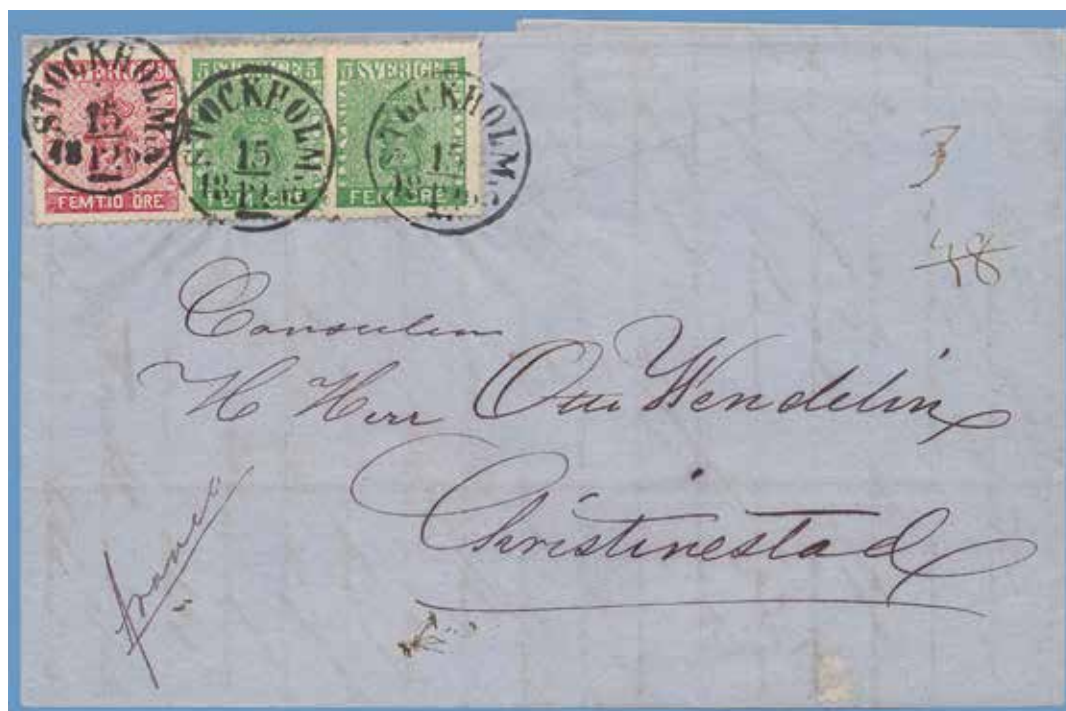 STOCKHOLM 15 12
SVERIGE 50
FEMTIO ÖRE
STOCKHOLM. 15 12
5 SVERIGE 5
FEM ÖRE
STOCKHOLM.
5 SVERIGE 5
FEM ÖRE
3
48
Consulen
H Herr Otto Wendelin
Christinestad
franco